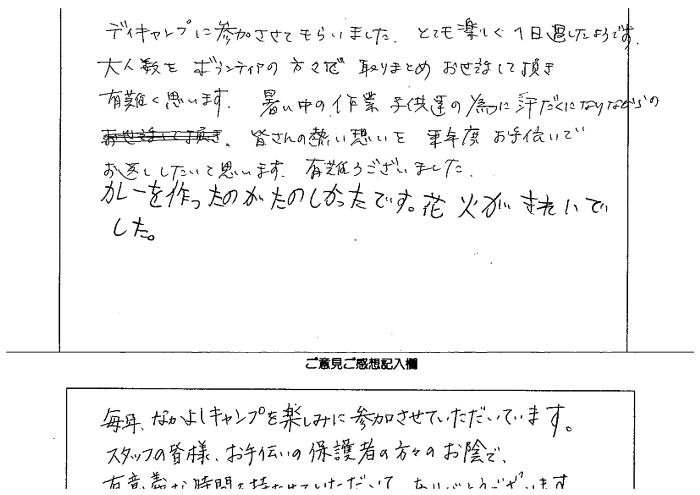 ディキャンプに参加させてもらいました. とても楽しく1日過したようです.
大人数を ボランティアの方々で 取りまとめ お世話して頂き
有難く思います. 暑い中の作業 子供達の為に汗だくになりながらの
お世話して頂き. 皆さんの熱い想いを 来年度 お手伝いで
お返ししたいと思います. 有難うございました.
カレーを作ったのがたのしかったです。花火がきれいで
した。
ご意見ご感想記入欄
毎年、なかよしキャンプを楽しみに参加させていただいています。
スタッフの皆様、お手伝いの保護者の方々のお陰で、
有意義な時間を持たせていただいて ありがとうございます